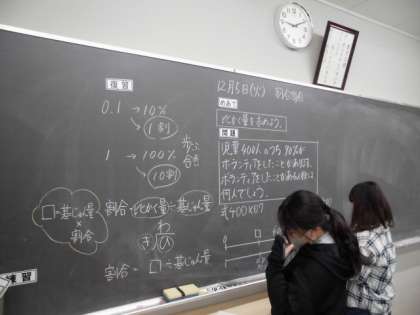 復習
0.1 → 10%
→ 1割
1 → 100%
→ 10割
歩合
割合=比かく量÷基じゅん量
□=基じゅん量
×
割合
わ
割合= □ ÷基じゅん量
練習
12月5日(火) 割合
めあて
比かく量を求めよう。
問題
児童400人のうち80%が
ボランティアをしたことがあります。
ボランティアをしたことがある人数は
何人でしょう。
式400×0.